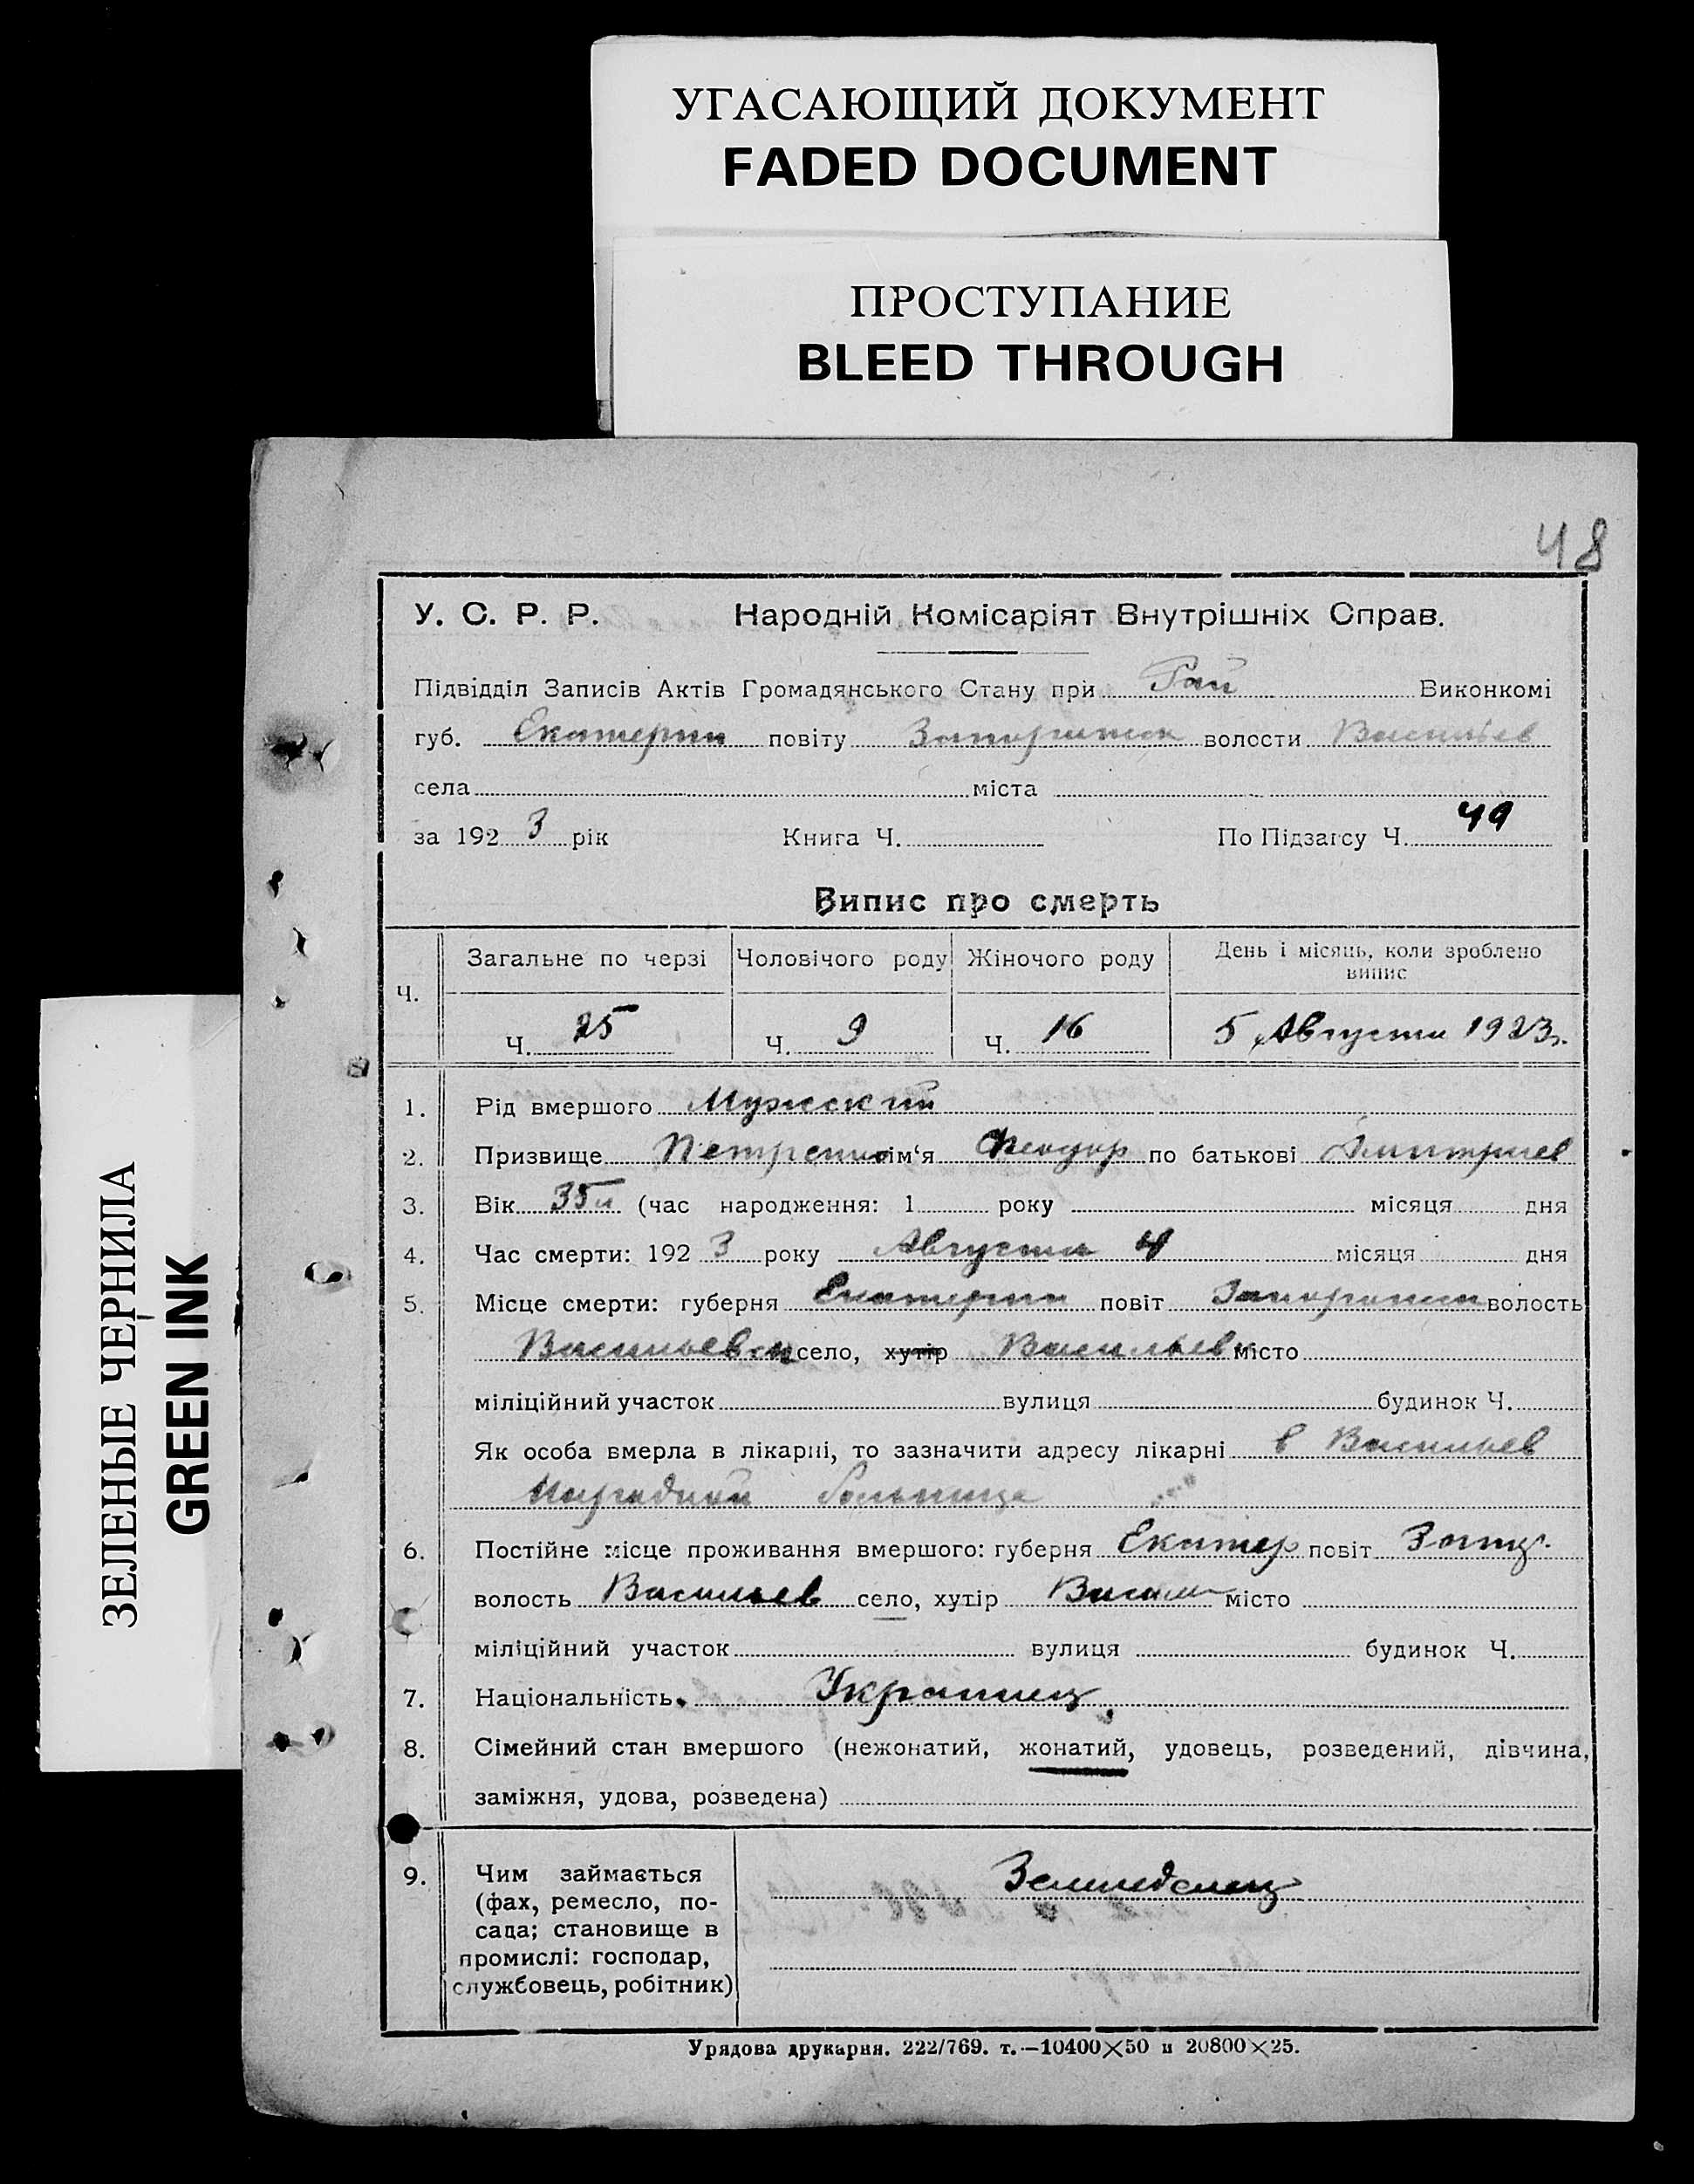 УГАСАЮЩИЙ ДОКУМЕНТ
FADED DOCUMENT
ПРОСТУПАНИЕ
BLEED THROUGH
ЗЕЛЕНЫЕ ЧЕРНИЛА
GREEN INK
48
У. С. Р. Р. Народній Комісаріят Внутрішніх Справ.
Підвідділ Записів Актів Громадянського Стану при Рай Виконкомі
губ. Екатерин повіту волости Васильев
села міста
за 192 3 рік Книга Ч. По Підзагсу Ч. 49
Випис про смерть
Ч. Загальне по черзі Чоловічого роду Жіночого роду День і місяць, коли зроблено випис
Ч. 25 Ч. 9 Ч. 16 5 Августа 1923г.
1. Рід вмершого Мужский
2. Призвище Петренко ім‘я Феодор по батькові Дмитриев
3. Вік 35 л (час народження: 1 року місяця дня
4. Час смерти: 192 3 року Августа 4 місяця дня
5. Місце смерти: губерня Екатерин повіт волость
Васильевск село, хутір Васильев місто
міліційний участок вулиця будинок Ч.
Як особа вмерла в лікарні, то зазначити адресу лікарні в Васильев
больнице
6. Постійне місце проживання вмершого: губерня Екатер повіт
волость Васильев село, хутір Васил місто
міліційний участок вулиця будинок Ч.
7. Національність Украинец
8. Сімейний стан вмершого (нежонатий, жонатий, удовець, розведений, дівчина,
заміжня, удова, розведена)
9. Чим займається
(фах, ремесло, по-
сада; становище в
промислі: господар,
службовець, робітник)
Земледелец
Урядова друкарня. 222/769. т.—10400×50 и 20800×25.